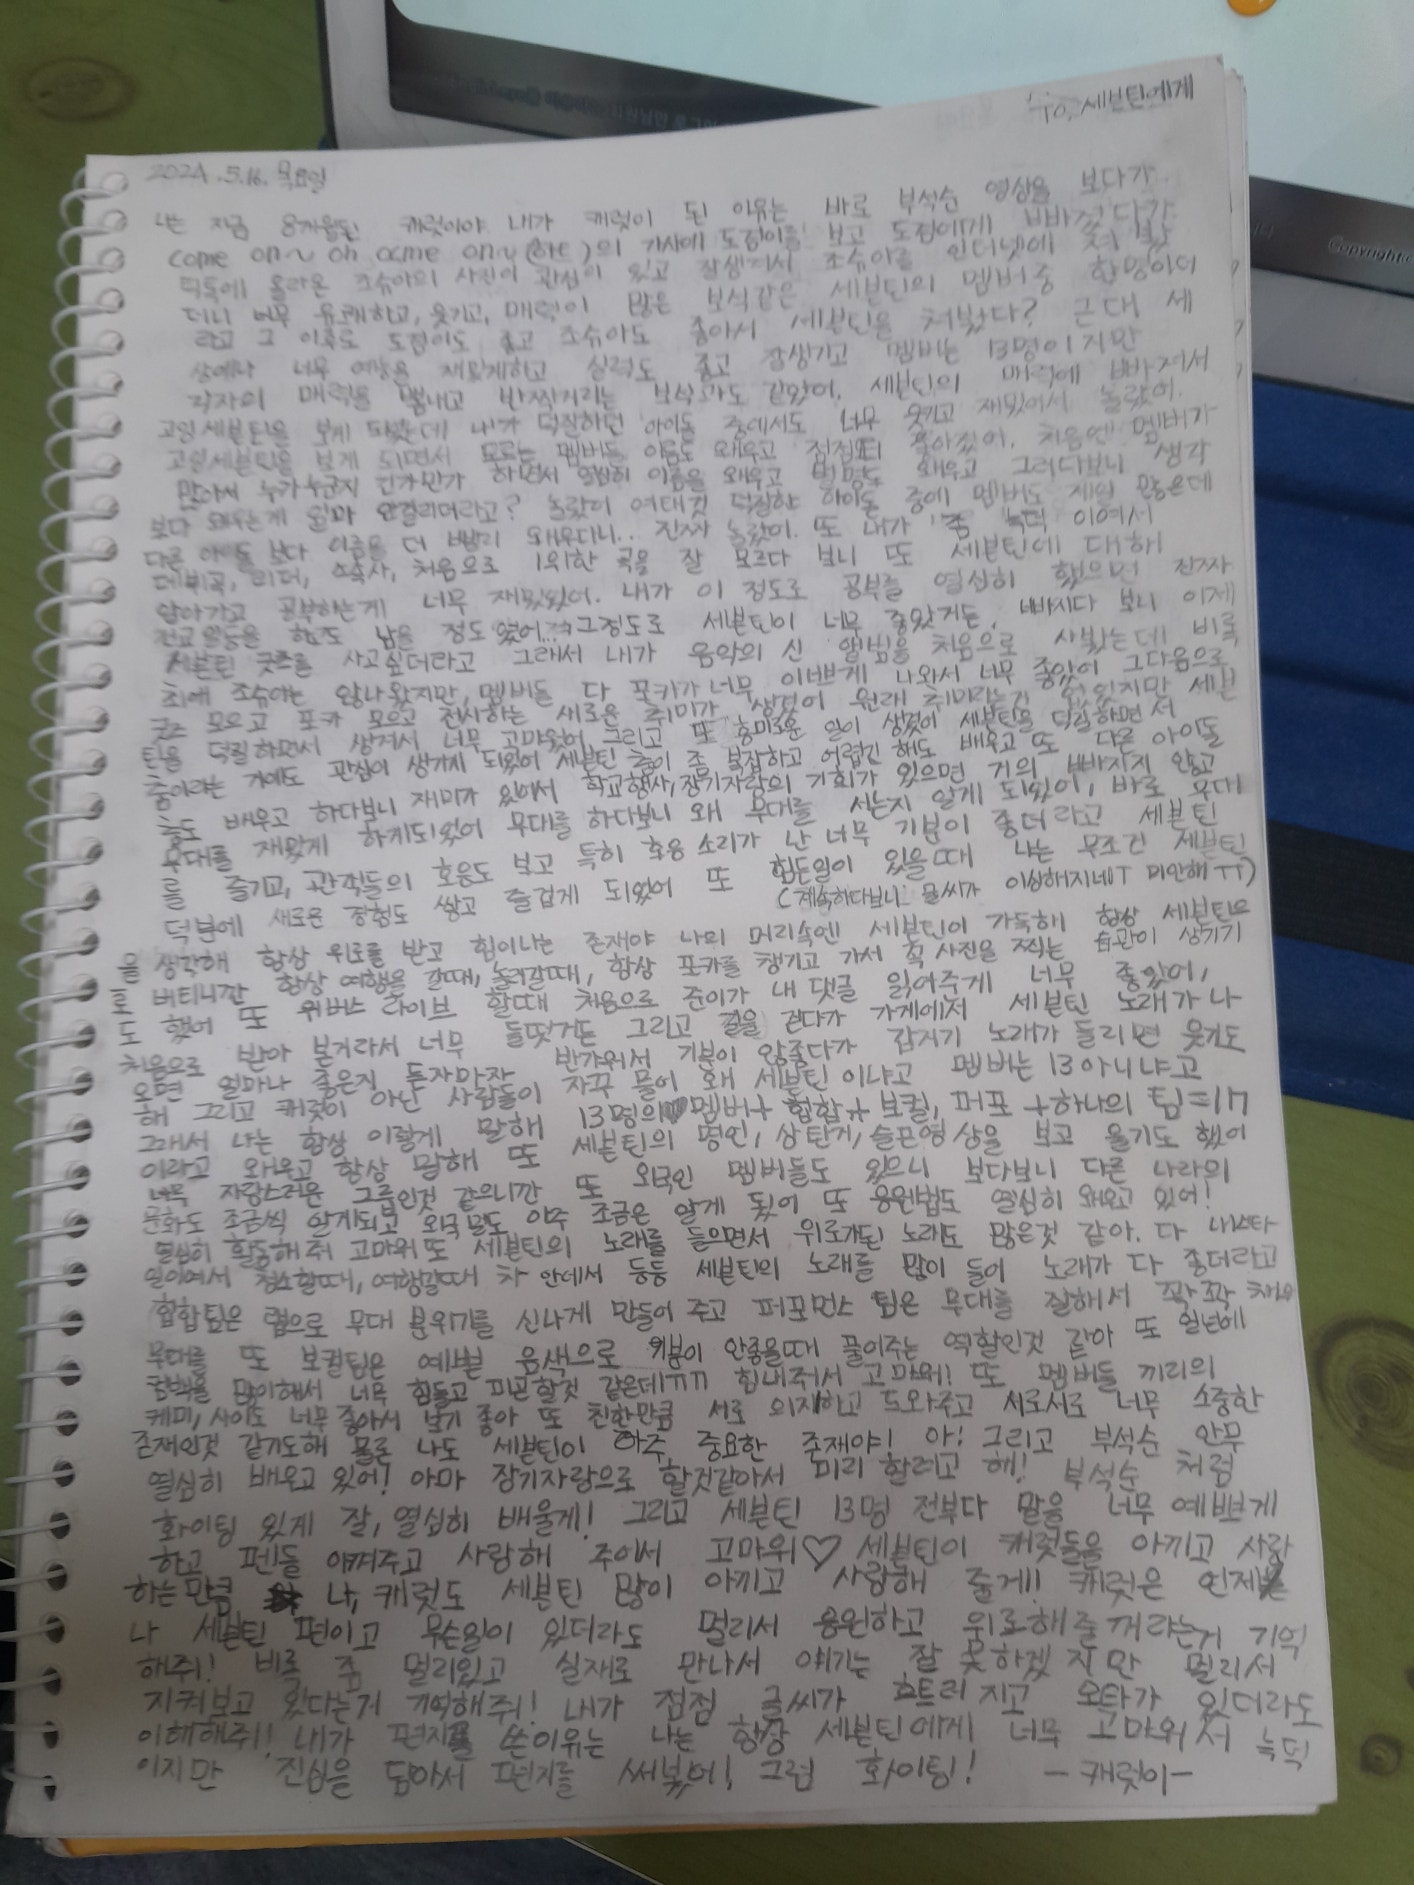 To, 세븐틴에게
2024.5.16. 목요일
나는 지금 8개월된 캐럿이야 내가 캐럿이 된 이유는 바로 부석순 영상을 보다가
come on~ oh acme on~ (하트)의 가사에 도겸이를 보고 도겸이에게 빠졌다가
틱톡에 올라온 조슈아의 사진이 관심이 있고 잘생겨서 조슈아를 인터넷에 쳐 봤
더니 너무 유쾌하고, 웃기고, 매력이 많은 보석같은 세븐틴의 멤버중 한명이더
라고 그 이후로 도겸이도 좋고 조슈아도 좋아서 세븐틴을 쳐봤다? 근대 세
상에나 너무 예능은 재밌게하고 실력도 좋고 잘생기고 멤버는 13명이지만
각자의 매력을 뽐내고 반짝거리는 보석과도 같았어. 세븐틴의 매력에 빠져서
고잉세븐틴을 보게 되었는데 내가 덕질하던 아이돌 중에서도 너무 웃기고 재밌어서 놀랐어.
고잉세븐틴을 보게 되면서 모르는 멤버들 이름도 왜우고 점점더 좋아졌어. 처음엔 멤버가
많아서 누가누군지 긴가민가 하면서 열심히 이름을 왜우고 별명도 왜우고 그러다보니 생각
보다 왜우는게 얼마 안걸리더라고? 놀랐어 여태껏 덕질한 아이돌 중에 멤버도 제일 많은데
다른 아이돌 보다 이름을 더 빨리 왜우다니... 진짜 놀랐어. 또 내가 좀 늦덕 이여서
데뷔곡, 리더, 소속사, 처음으로 1위한 곡을 잘 모르다 보니 또 세븐틴에 대해
알아가고 공부하는게 너무 재밌었어. 내가 이 정도로 공부를 열심히 했으면 진짜
전교 일등을 해도 남을 정도였어... 그정도로 세븐틴이 너무 좋았거든, 빠지다 보니 이제
세븐틴 굿즈를 사고싶더라고 그래서 내가 음악의 신 앨범을 처음으로 사봤는데 비록
최애 조슈아는 않나왔지만, 멤버들 다 포카가 너무 이쁘게 나와서 너무 좋았어 그다음으로
굿즈 모으고 포카 모으고 전시하는 새로운 취미가 생겼어 원래 취미라는건 없었지만 세븐
틴을 덕질하면서 생겨서 너무 고마웠어 그리고 또 흥미로운 일이 생겼어 세븐틴을 덕질하면서
춤이라는 거에도 관심이 생기지 되었어 세븐틴 춤이 좀 복잡하고 어렵긴 해도 배우고 또 다른 아이돌
춤도 배우고 하다보니 재미가 있어서 학교행사, 장기자랑의 기회가 있으면 거의 빠지지 않고
무대를 재밌게 하게되었어 무대를 하다보니 왜 무대를 서는지 알게 되었어, 바로 무대
를 즐기고, 관객들의 호응도 보고 특히 호응 소리가 난 너무 기분이 좋더라고 세븐틴
덕분에 새로운 경험도 쌓고 즐겁게 되었어 또 힘든일이 있을때 나는 무조건 세븐틴
(계속하다보니 글씨가 이상해지네ㅜ 미안해ㅜㅜ)
을 생각해 항상 위로를 받고 힘이나는 존재야 나의 머리속엔 세븐틴이 가득해 항상 세븐틴으
로 버티니깐 항상 여행을 갈때, 놀러갈때, 항상 포카를 챙기고 가서 꼭 사진을 찍는 습관이 생기기
도 했어 또 위버스 라이브 할때 처음으로 준이가 내 댓글 읽어주게 너무 좋았어,
처음으로 받아 본거라서 너무 들떳거든 그리고 길을 걷다가 가게에서 세븐틴 노래가 나
오면 얼마나 좋은지 듣자마자 반가워서 기분이 않좋다가 갑자기 노래가 들리면 웃기도
해 그리고 캐럿이 아닌 사람들이 자꾸 물어 왜 세븐틴이냐고 멤버는 13아니냐고
그래서 나는 항상 이렇게 말해 13명의 멤버+힙합+보컬, 퍼포+하나의 팀=17
이라고 왜우고 항상 말해 또 세븐틴의 명언, 상탄거, 슬픈영상을 보고 울기도 했어
너무 자랑스러운 그룹인것 같으니깐 또 외국인 멤버들도 있으니 보다보니 다른 나라의
문화도 조금씩 알게되고 외국말도 아주 조금은 알게 됬어 또 응원법도 열심히 왜우고 있어!
열심히 활동해줘 고마워 또 세븐틴의 노래를 들으면서 위로가된 노래도 많은것 같아. 다 내스타
일이여서 청소할때, 여행갈때 차 안에서 등등 세븐틴의 노래를 많이 들어 노래가 다 좋더라고
힙합팀은 랩으로 무대 분위기를 신나게 만들어 주고 퍼포먼스 팀은 무대를 잘해서 꽉꽉 채워
무대를 또 보컬팀은 예쁜 음색으로 기분이 안좋을때 풀어주는 역할인것 같아 또 일년에
컴백을 많이해서 너무 힘들고 피곤할것 같은데ㅠㅠ 힘내줘서 고마워! 또 멤버들 끼리의
케미, 사이도 너무좋아서 보기 좋아 또 친한만큼 서로 의지하고 도와주고 서로서로 너무 소중한
존재인것 같기도해 물론 나도 세븐틴이 아주 중요한 존재야! 아! 그리고 부석순 안무
열심히 배우고 있어! 아마 장기자랑으로 할것같아서 미리 할려고 해! 부석순 처럼
화이팅 있게 잘, 열심히 배울게! 그리고 세븐틴 13명 전부다 말을 너무 예쁘게
하고 팬들 아껴주고 사랑해 주어서 고마워♡ 세븐틴이 캐럿들을 아끼고 사랑
하는 만큼 나, 캐럿도 세븐틴 많이 아끼고 사랑해 줄게!! 캐럿은 언제
나 세븐틴 편이고 무슨일이 있더라도 멀리서 응원하고 위로해줄꺼라는거 기억
해줘! 비록 좀 멀리있고 실재로 만나서 얘기는 잘 못하겠지만 멀리서
지켜보고 있다는거 기억해줘! 내가 점점 글씨가 흐트러지고 오타가 있더라도
이해해줘! 내가 편지를 쓴이유는 나는 항상 세븐틴에게 너무 고마워서 늦덕
이지만 진심을 담아서 편지를 써봤어! 그럼 화이팅! -캐럿이-
Copyright